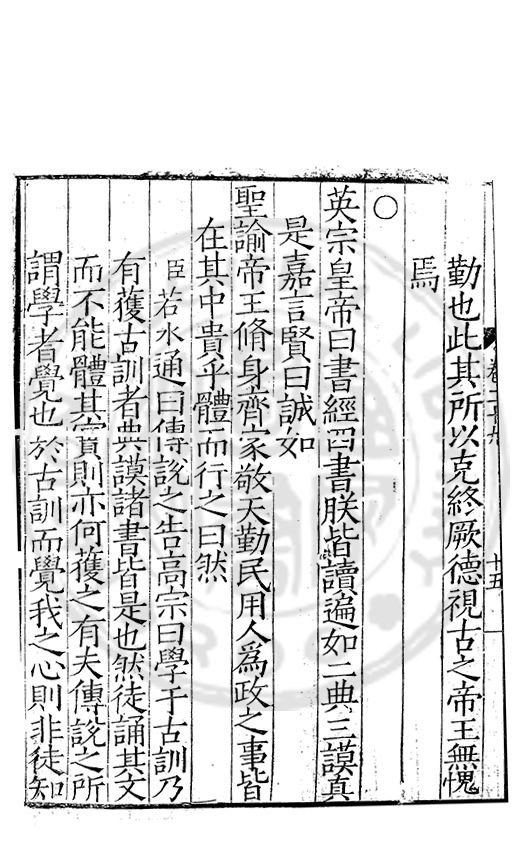 勤也此其所以克終厥德視古之帝王無愧
焉
○
英宗皇帝曰書經四書朕皆讀遍如二典三謨真
是嘉言賢曰誠如
聖諭帝王脩身齊家敬天勤民用人為政之事皆
在其中貴乎體而行之曰然
臣若水通曰傳說之告高宗曰學于古訓乃
有獲古訓者典謨諸書皆是也然徒誦其文
而不能體其實則亦何獲之有夫傳說之所
謂學者覺也於古訓而覺我之心則非徒知